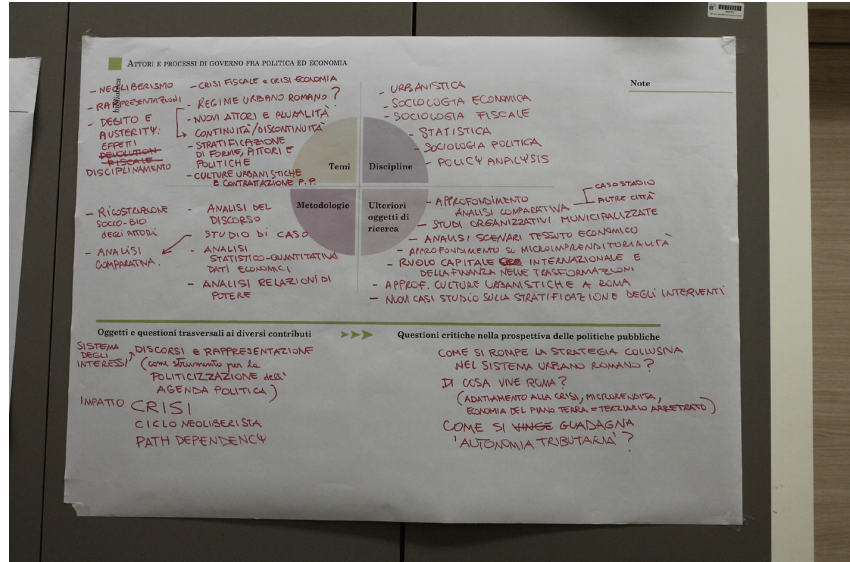 ATTORI E PROCESSI DI GOVERNO FRA POLITICA ED ECONOMIA
- NEOLIBERISMO
- RAPPRESENTAZIONI
- DEBITO E
AUSTERITY:
EFFETTI
DEVOLUTION
FISCALE
DISCIPLINAMENTO
- CRISI FISCALE e CRISI ECONOMIA
- REGIME URBANO ROMANO?
- NUOVI ATTORI E PLURALITÀ
CONTINUITÀ/DISCONTINUITÀ
- STRATIFICAZIONE
DI FORME, ATTORI E
POLITICHE
- CULTURE URBANISTICHE
E CONTRATTAZIONE P.P.
Temi
Discipline
- URBANISTICA
- SOCIOLOGIA ECONOMICA
- SOCIOLOGIA FISCALE
- STATISTICA
- SOCIOLOGIA POLITICA
- POLICY ANALYSIS
Note
Metodologie
- RICOSTRUZIONE
SOCIO-BIO
DEGLI ATTORI
- ANALISI
COMPARATIVA.
- ANALISI DEL
DISCORSO
- STUDIO DI CASO
- ANALISI
STATISTICO-QUANTITATIVA
DATI ECONOMICI
- ANALISI RELAZIONI DI
POTERE
Ulteriori
oggetti di
ricerca
- APPROFONDIMENTO
ANALISI COMPARATIVA
CASO STUDIO
ALTRE CITTÀ
- STUDI ORGANIZZATIVI MUNICIPALIZZATE
- ANALISI SCENARI TESSUTO ECONOMICO
- APPROFONDIMENTO SU MICROIMPRENDITORIALITÀ
- RUOLO CAPITALE INTERNAZIONALE E
DELLA FINANZA NELLE TRASFORMAZIONI
- APPROF. CULTURE URBANISTICHE A ROMA
- NUOVI CASI STUDIO SULLA STRATIFICAZIONE DEGLI INTERVENTI
Oggetti e questioni trasversali ai diversi contributi
SISTEMA
DEGLI
INTERESSI
DISCORSI e RAPPRESENTAZIONE
(come strumento per la
POLITICIZZAZIONE dell'
AGENDA POLITICA)
IMPATTO CRISI
CICLO NEOLIBERISTA
PATH DEPENDENCY
Questioni critiche nella prospettiva delle politiche pubbliche
COME SI ROMPE LA STRATEGIA COLLUSIVA
NEL SISTEMA URBANO ROMANO?
DI COSA VIVE ROMA?
(ADATTAMENTO ALLA CRISI, MICRORENDITA,
ECONOMIA DEL PIANO TERRA = TERZIARIO ARRETRATO)
COME SI VINCE GUADAGNA
'AUTONOMIA TRIBUTARIA'?